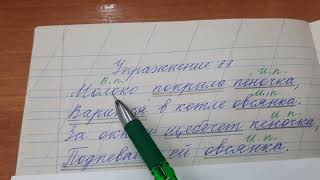 Упражнение 88
В.п. И.п.
Молоко покрыла пеночка,
И.п.
Варится в котле овсянка.
И.п.
За окном щебечет пеночка,
И.п.
Подпевает ей овсянка.